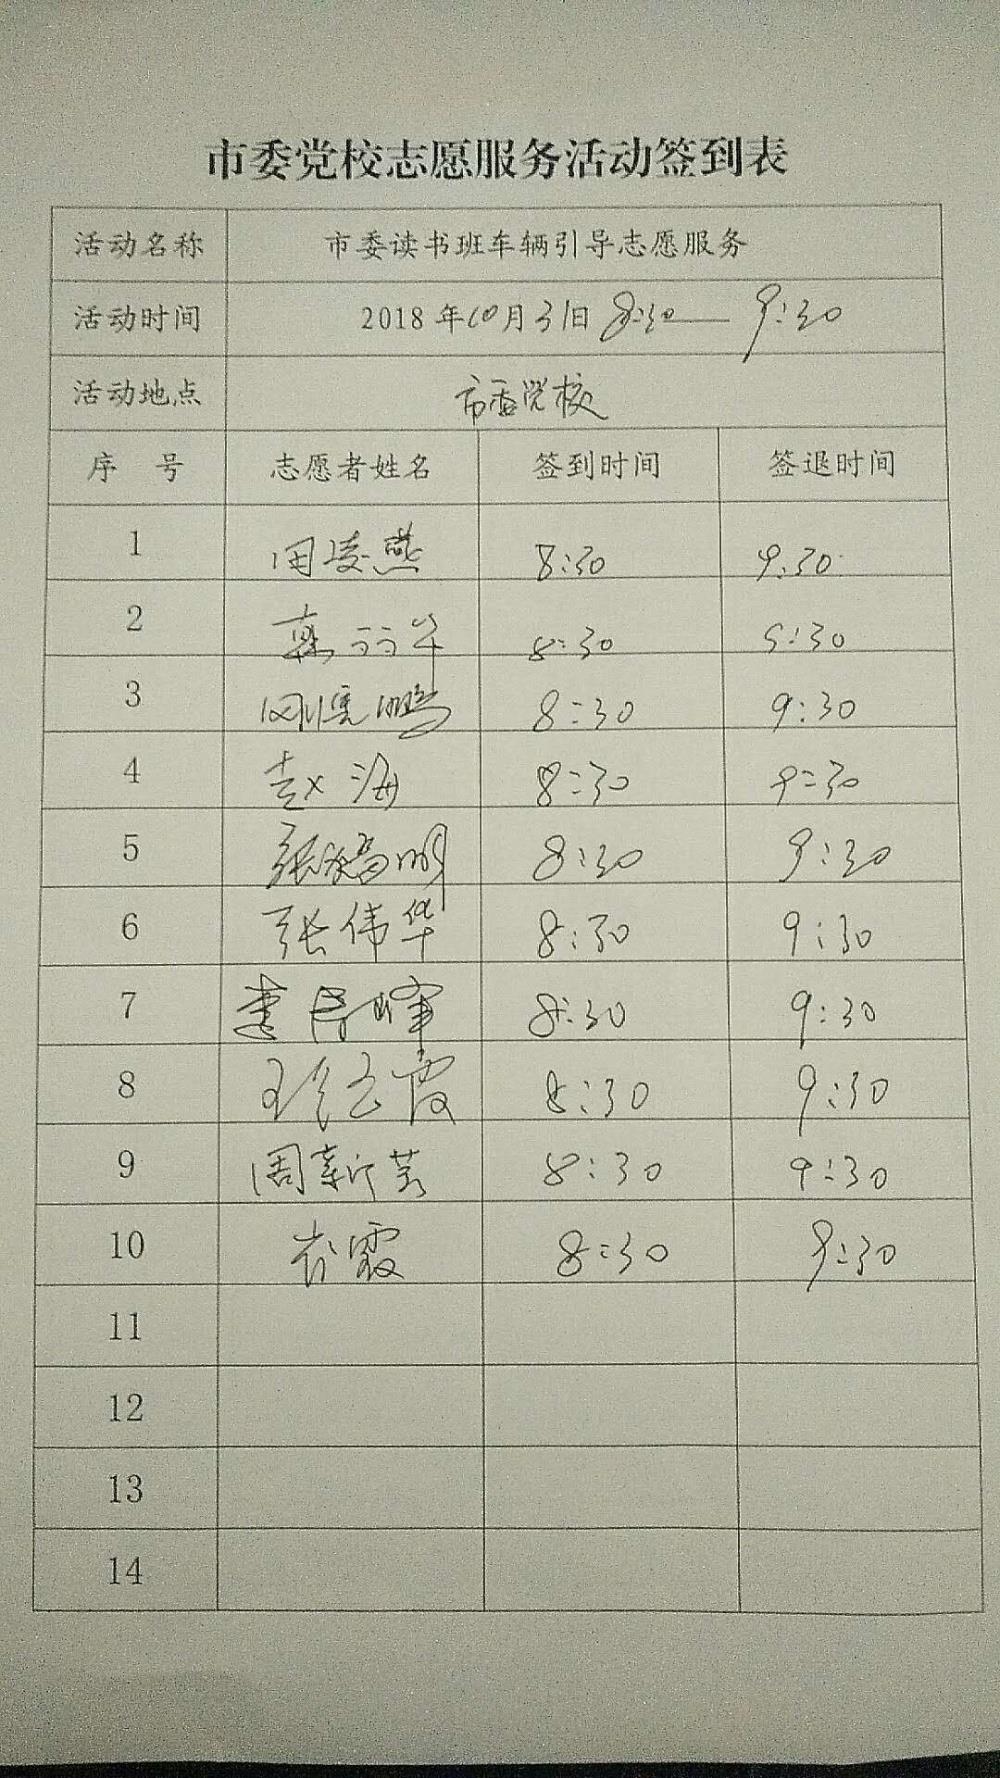 市委党校志愿服务活动签到表
活动名称 市委读书班车辆引导志愿服务
活动时间 2018年10月31日 8:30—9:30
活动地点 市委党校
序 号 志愿者姓名 签到时间 签退时间
1 8:30 9:30
2 8:30 9:30
3 8:30 9:30
4 赵海 8:30 9:30
5 8:30 9:30
6 张伟华 8:30 9:30
7 8:30 9:30
8 8:30 9:30
9 周新芳 8:30 9:30
10 8:30 9:30
11
12
13
14